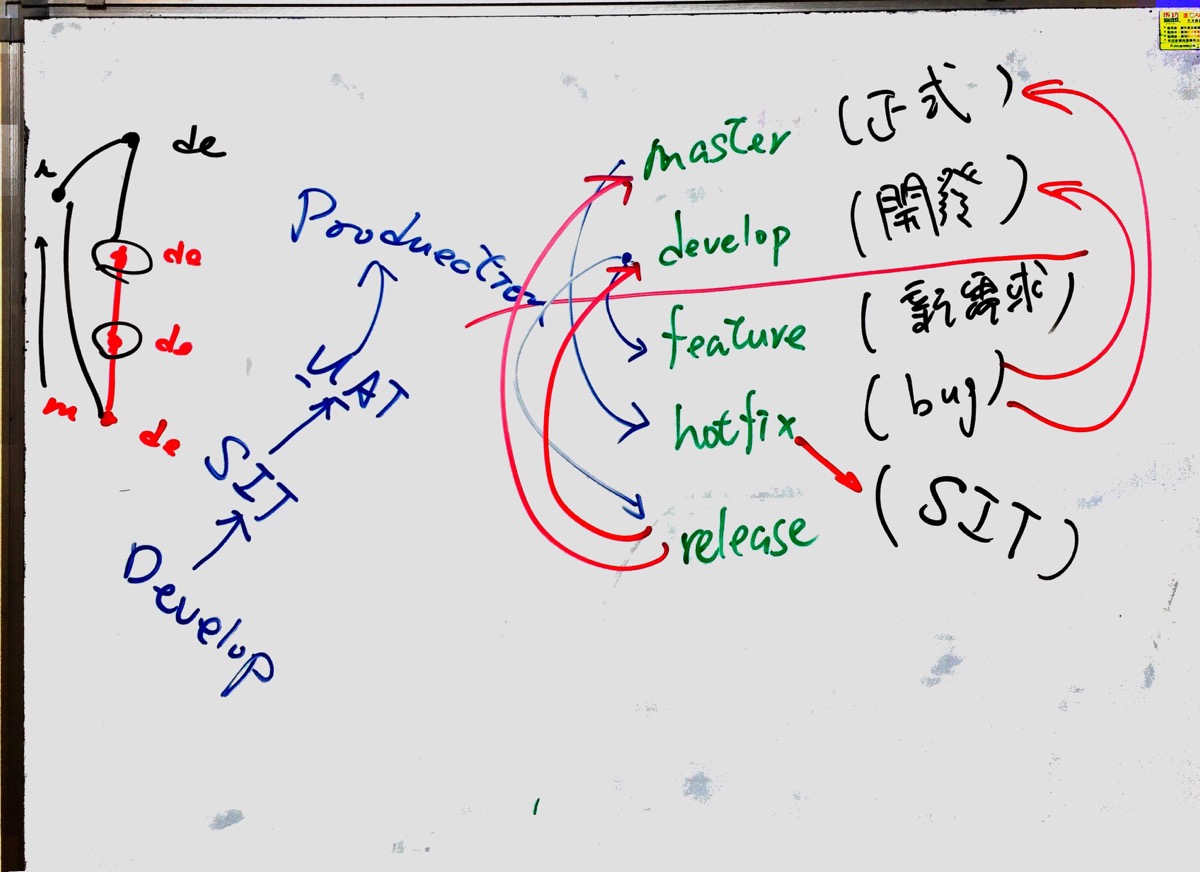 de
r
de
de
m
de
Production
UAT
SIT
Develop
master (正式)
develop (開發)
feature (新需求)
hotfix (bug)
release (SIT)